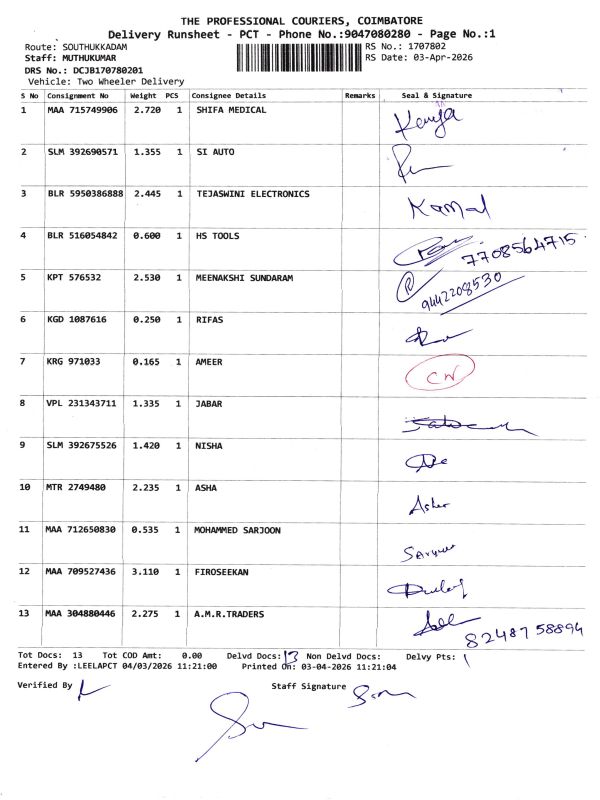 THE PROFESSIONAL COURIERS, COIMBATORE
Delivery Runsheet - PCT - Phone No.:9047080280 - Page No.:1
Route: SOUTHUKKADAM RS No.: 1707802
Staff: MUTHUKUMAR RS Date: 03-Apr-2026
DRS No.: DCJB170780201
Vehicle: Two Wheeler Delivery
S No Consignment No Weight PCS Consignee Details Remarks Seal & Signature
1 MAA 715749906 2.720 1 SHIFA MEDICAL
2 SLM 392690571 1.355 1 SI AUTO
3 BLR 5950386888 2.445 1 TEJASWINI ELECTRONICS Kamal
4 BLR 516054842 0.600 1 HS TOOLS 7708564715
5 KPT 576532 2.530 1 MEENAKSHI SUNDARAM R 9442208530
6 KGD 1087616 0.250 1 RIFAS
7 KRG 971033 0.165 1 AMEER CN
8 VPL 231343711 1.335 1 JABAR
9 SLM 392675526 1.420 1 NISHA
10 MTR 2749480 2.235 1 ASHA
11 MAA 712650830 0.535 1 MOHAMMED SARJOON
12 MAA 709527436 3.110 1 FIROSEEKAN
13 MAA 304880446 2.275 1 A.M.R.TRADERS 8248758894
Tot Docs: 13 Tot COD Amt: 0.00 Delvd Docs: 13 Non Delvd Docs: Delvy Pts:
Entered By :LEELAPCT 04/03/2026 11:21:00 Printed On: 03-04-2026 11:21:04
Verified By Staff Signature